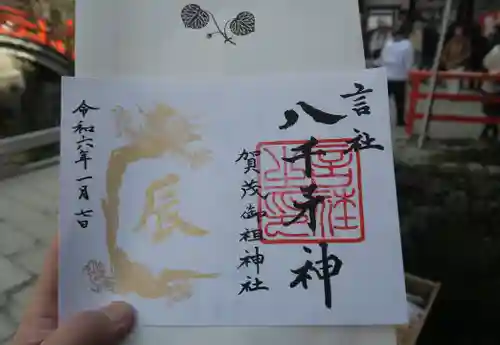 言社
八千矛神
賀茂御祖神社
辰
令和六年一月七日